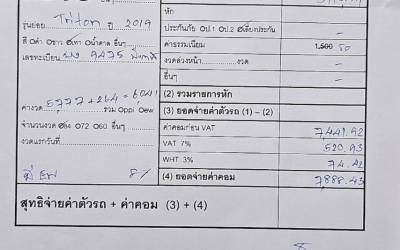 หัก
รุ่นย่อย Triton ปี 2019
ประกันภัย ป.1 ป.2 เบี้ยงประกัน -
สี ดำ ขาว เทา น้ำตาล อื่นๆ
ค่าธรรมเนียม 1,500 50
เลขทะเบียน 9475
งวดล่วงหน้า งวด -
อื่นๆ -
(2) รวมรายการหัก
ค่างวด 5,777 + 264 = 6,041 รวม Oppi Oew
(3) ยอดจ่ายค่าตัวรถ (1) – (2)
จำนวนงวด 72 60 อื่นๆ
ค่าคอมก่อน VAT 7,441.92
งวดแรกวันที่
VAT 7% 520.93
WHT 3% 74.42
8%
(4) ยอดจ่ายค่าคอม 7,888.43
สุทธิจ่ายค่าตัวรถ + ค่าคอม (3) + (4)